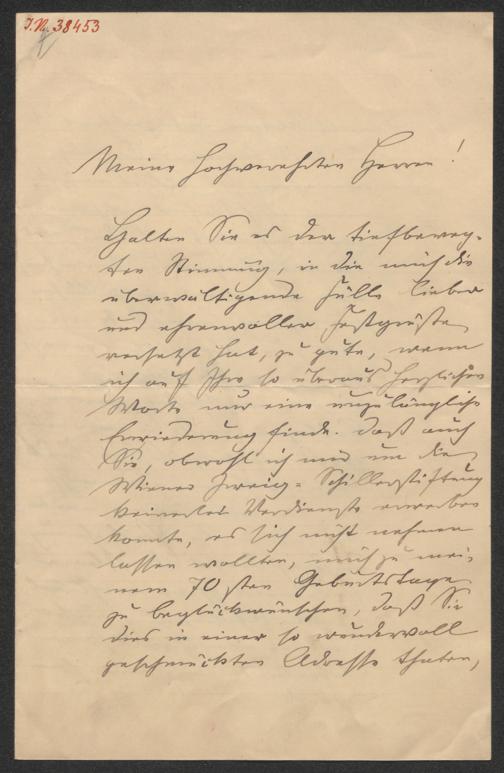 J.N. 38453
Meine hochverehrten Herren!
Halten Sie es der tiefbeweg-
ten Stimmung, in die mich die
überwältigende Fülle lieber
und ehrenvoller Festgrüße
versetzt hat, zu gute, wenn
ich auf Ihre so überaus herzlichen
Worte nur eine unzulängliche
Erwiederung finde. Daß auch
Sie, obwohl ich mir um die
Wiener Zweig-Schillerstiftung
keinerlei Verdienste erwerben
konnte, es sich nicht nehmen
lassen wollten, mich zu mei-
nem 70sten Geburtstage
zu beglückwünschen, daß Sie
dies in einer so wundervoll
geschmückten Adresse thaten,